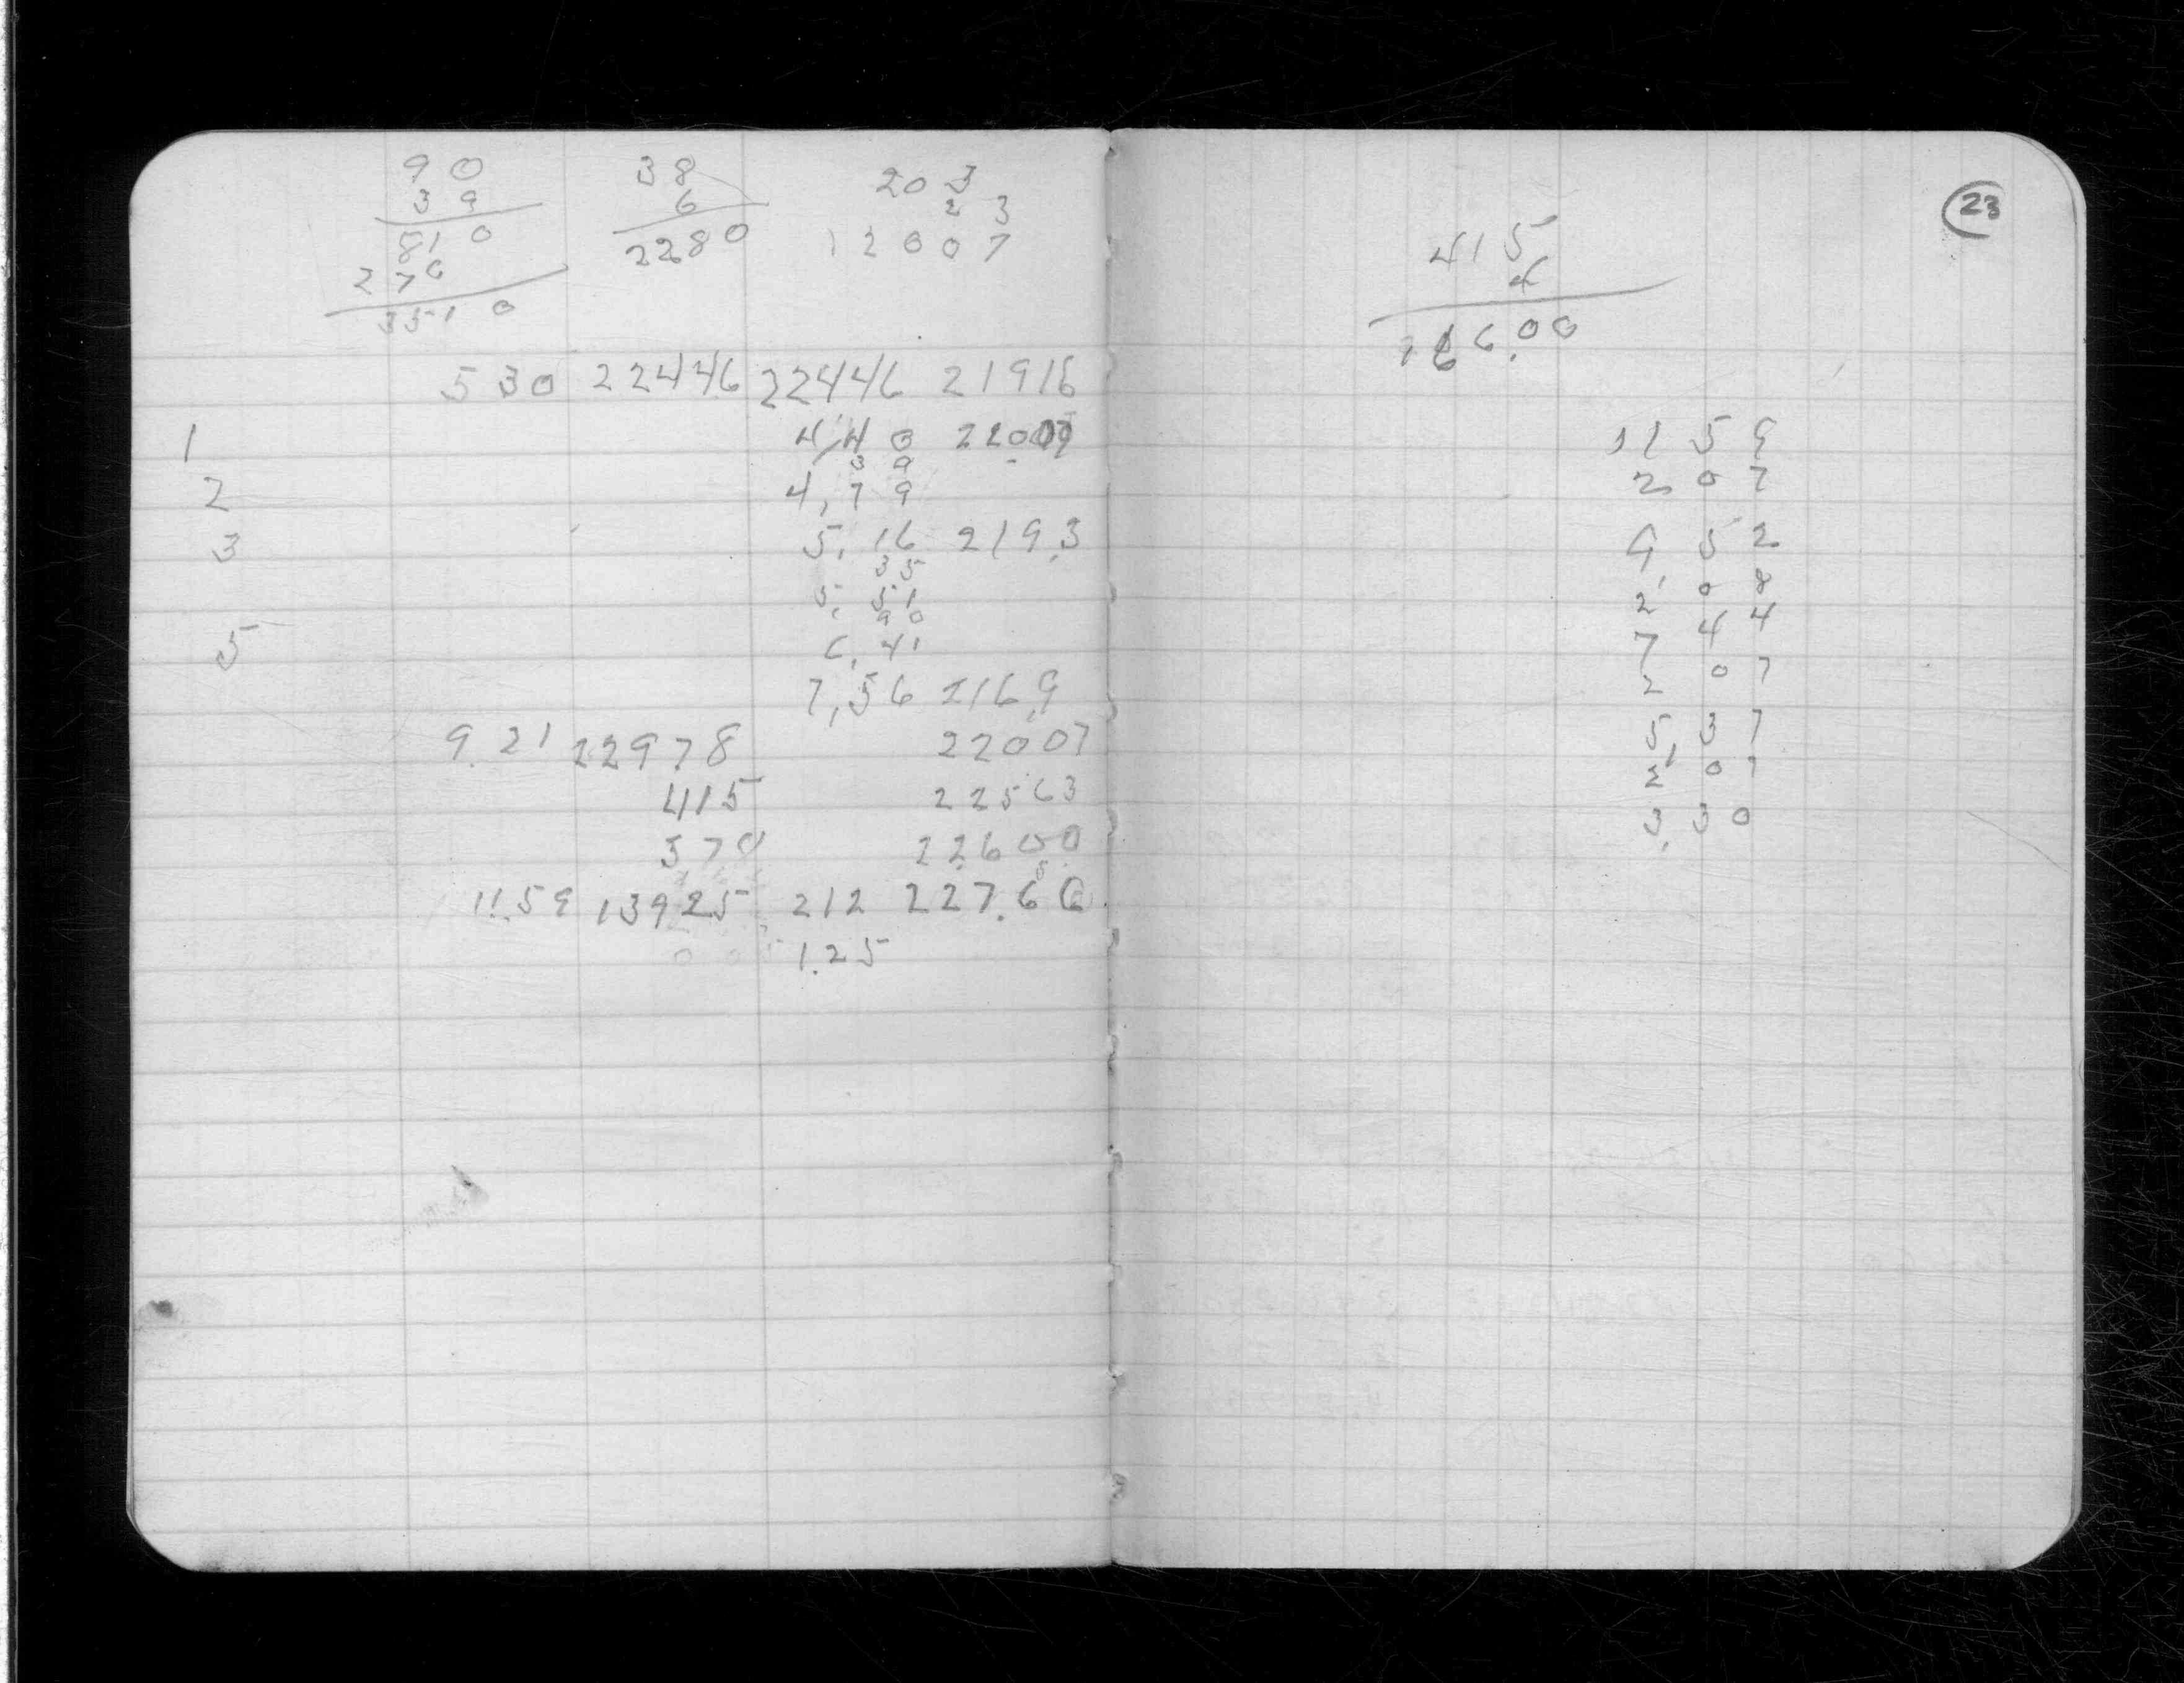 90 38 203
39 6 2 3
810 2280 12007
276
3510
530 22446 22446 21916
1 4,40 22007
39
2 4,79
3 5,16 219.3
35
5,51
90
5 6,41
7,56 216,9
9.21 2297.8 22007
415 22563
370 22600
11.59 13925 212 227.66
1.25
23
415
4
166.00
11 59
2 07
9, 52
2 08
7 44
2 07
5, 37
2 07
3, 30